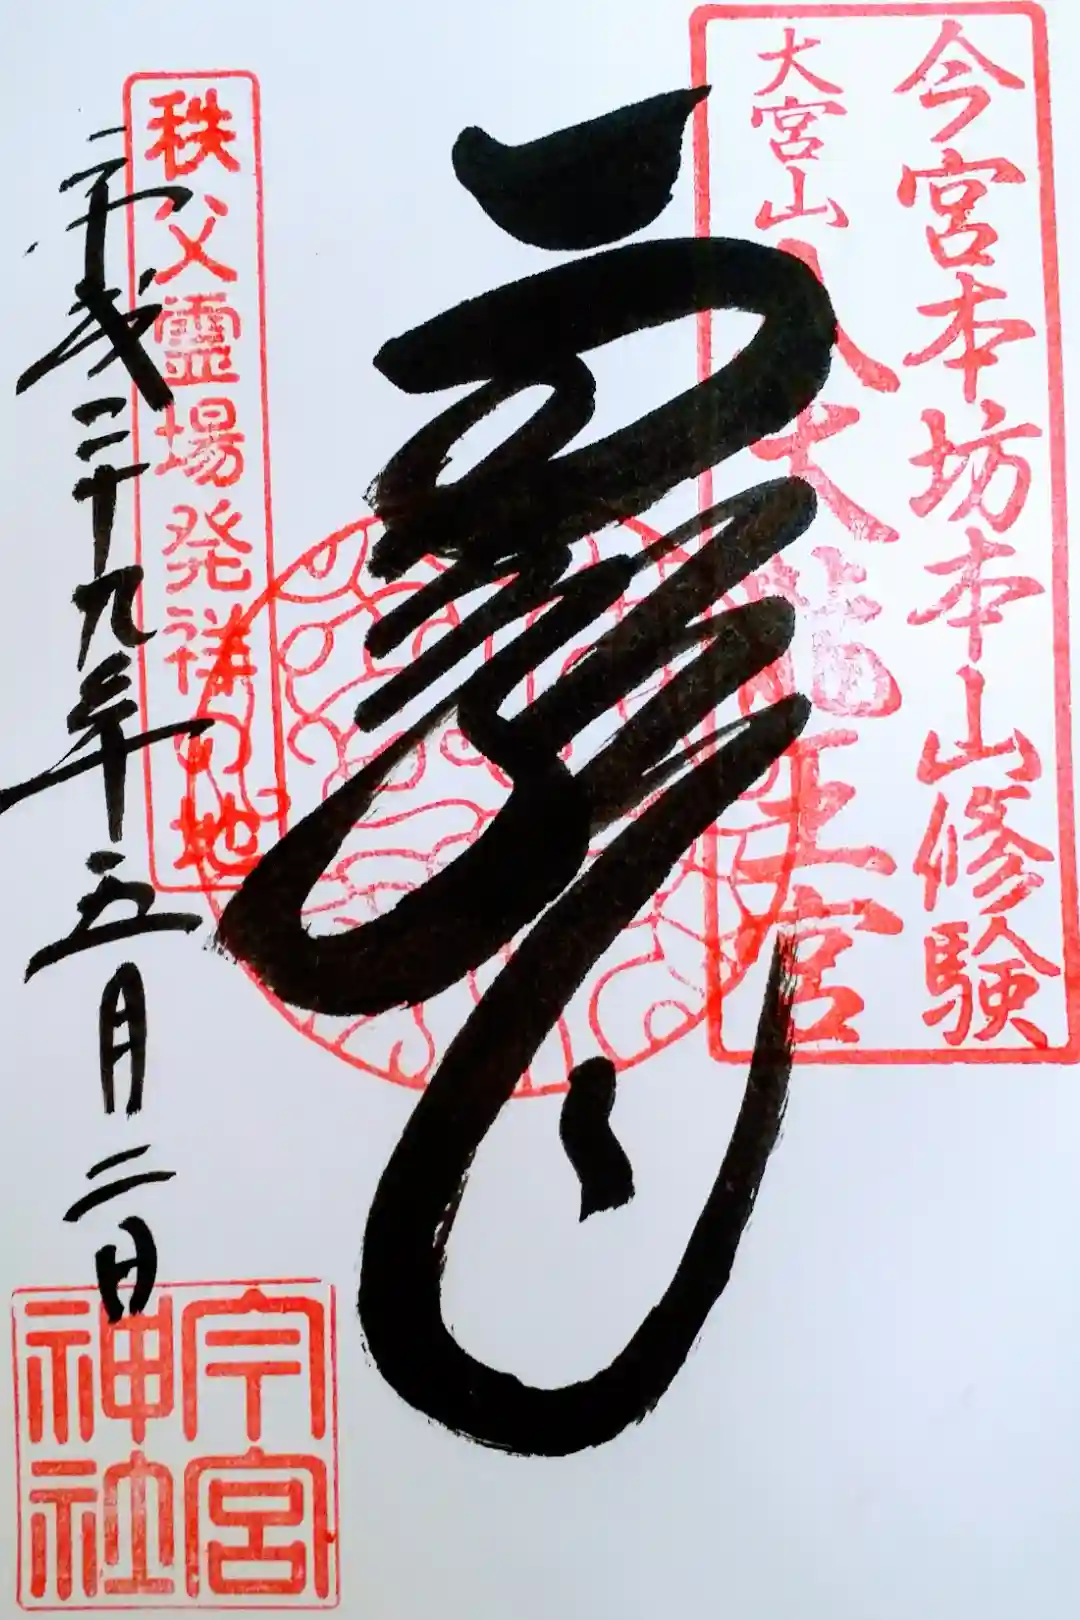 今宮本坊本山修験
大宮山
八大龍王宮
龍
秩父霊場発祥の地
平成二十九年五月二日
今宮
神社